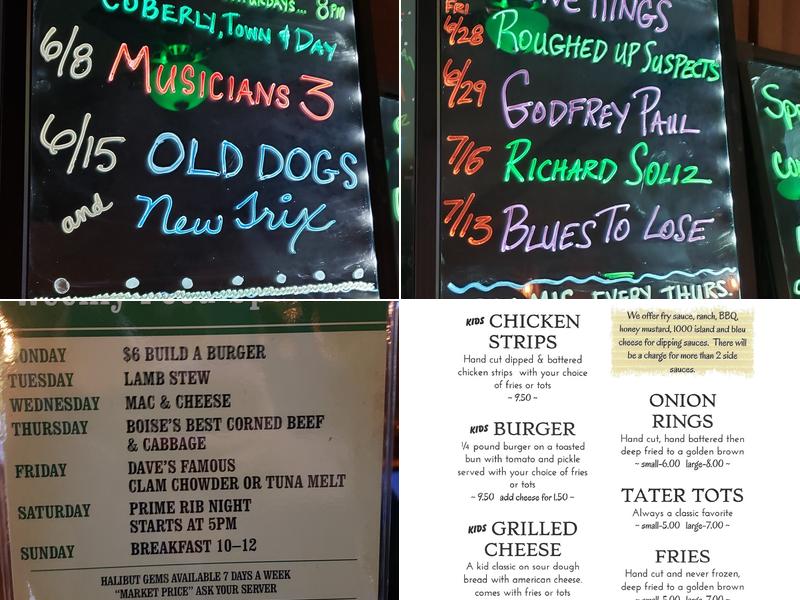 SATURDAYS... 8PM
COBERLY, TOWN & DAY
6/8 MUSICIANS 3
6/15 OLD DOGS
and New Trix
FRI
6/28 ROUGHED UP SUSPECTS
6/29 GODFREY PAUL
7/6 RICHARD SOLIZ
7/13 BLUES TO LOSE
EVERY THURS.
MONDAY $6 BUILD A BURGER
TUESDAY LAMB STEW
WEDNESDAY MAC & CHEESE
THURSDAY BOISE'S BEST CORNED BEEF
& CABBAGE
FRIDAY DAVE'S FAMOUS
CLAM CHOWDER OR TUNA MELT
SATURDAY PRIME RIB NIGHT
STARTS AT 5PM
SUNDAY BREAKFAST 10–12
HALIBUT GEMS AVAILABLE 7 DAYS A WEEK
"MARKET PRICE" ASK YOUR SERVER
KIDS CHICKEN
STRIPS
Hand cut dipped & battered
chicken strips with your choice
of fries or tots
~ 9.50 ~
KIDS BURGER
¼ pound burger on a toasted
bun with tomato and pickle
served with your choice of fries
or tots
~ 9.50 add cheese for 1.50 ~
KIDS GRILLED
CHEESE
A kid classic on sour dough
bread with american cheese.
comes with fries or tots
We offer fry sauce, ranch, BBQ,
honey mustard, 1000 island and bleu
cheese for dipping sauces. There will
be a charge for more than 2 side
sauces.
ONION
RINGS
Hand cut, hand battered then
deep fried to a golden brown
~ small-6.00 large-8.00 ~
TATER TOTS
Always a classic favorite
~ small-5.00 large-7.00 ~
FRIES
Hand cut and never frozen,
deep fried to a golden brown
~ small-5.00 large-7.00 ~